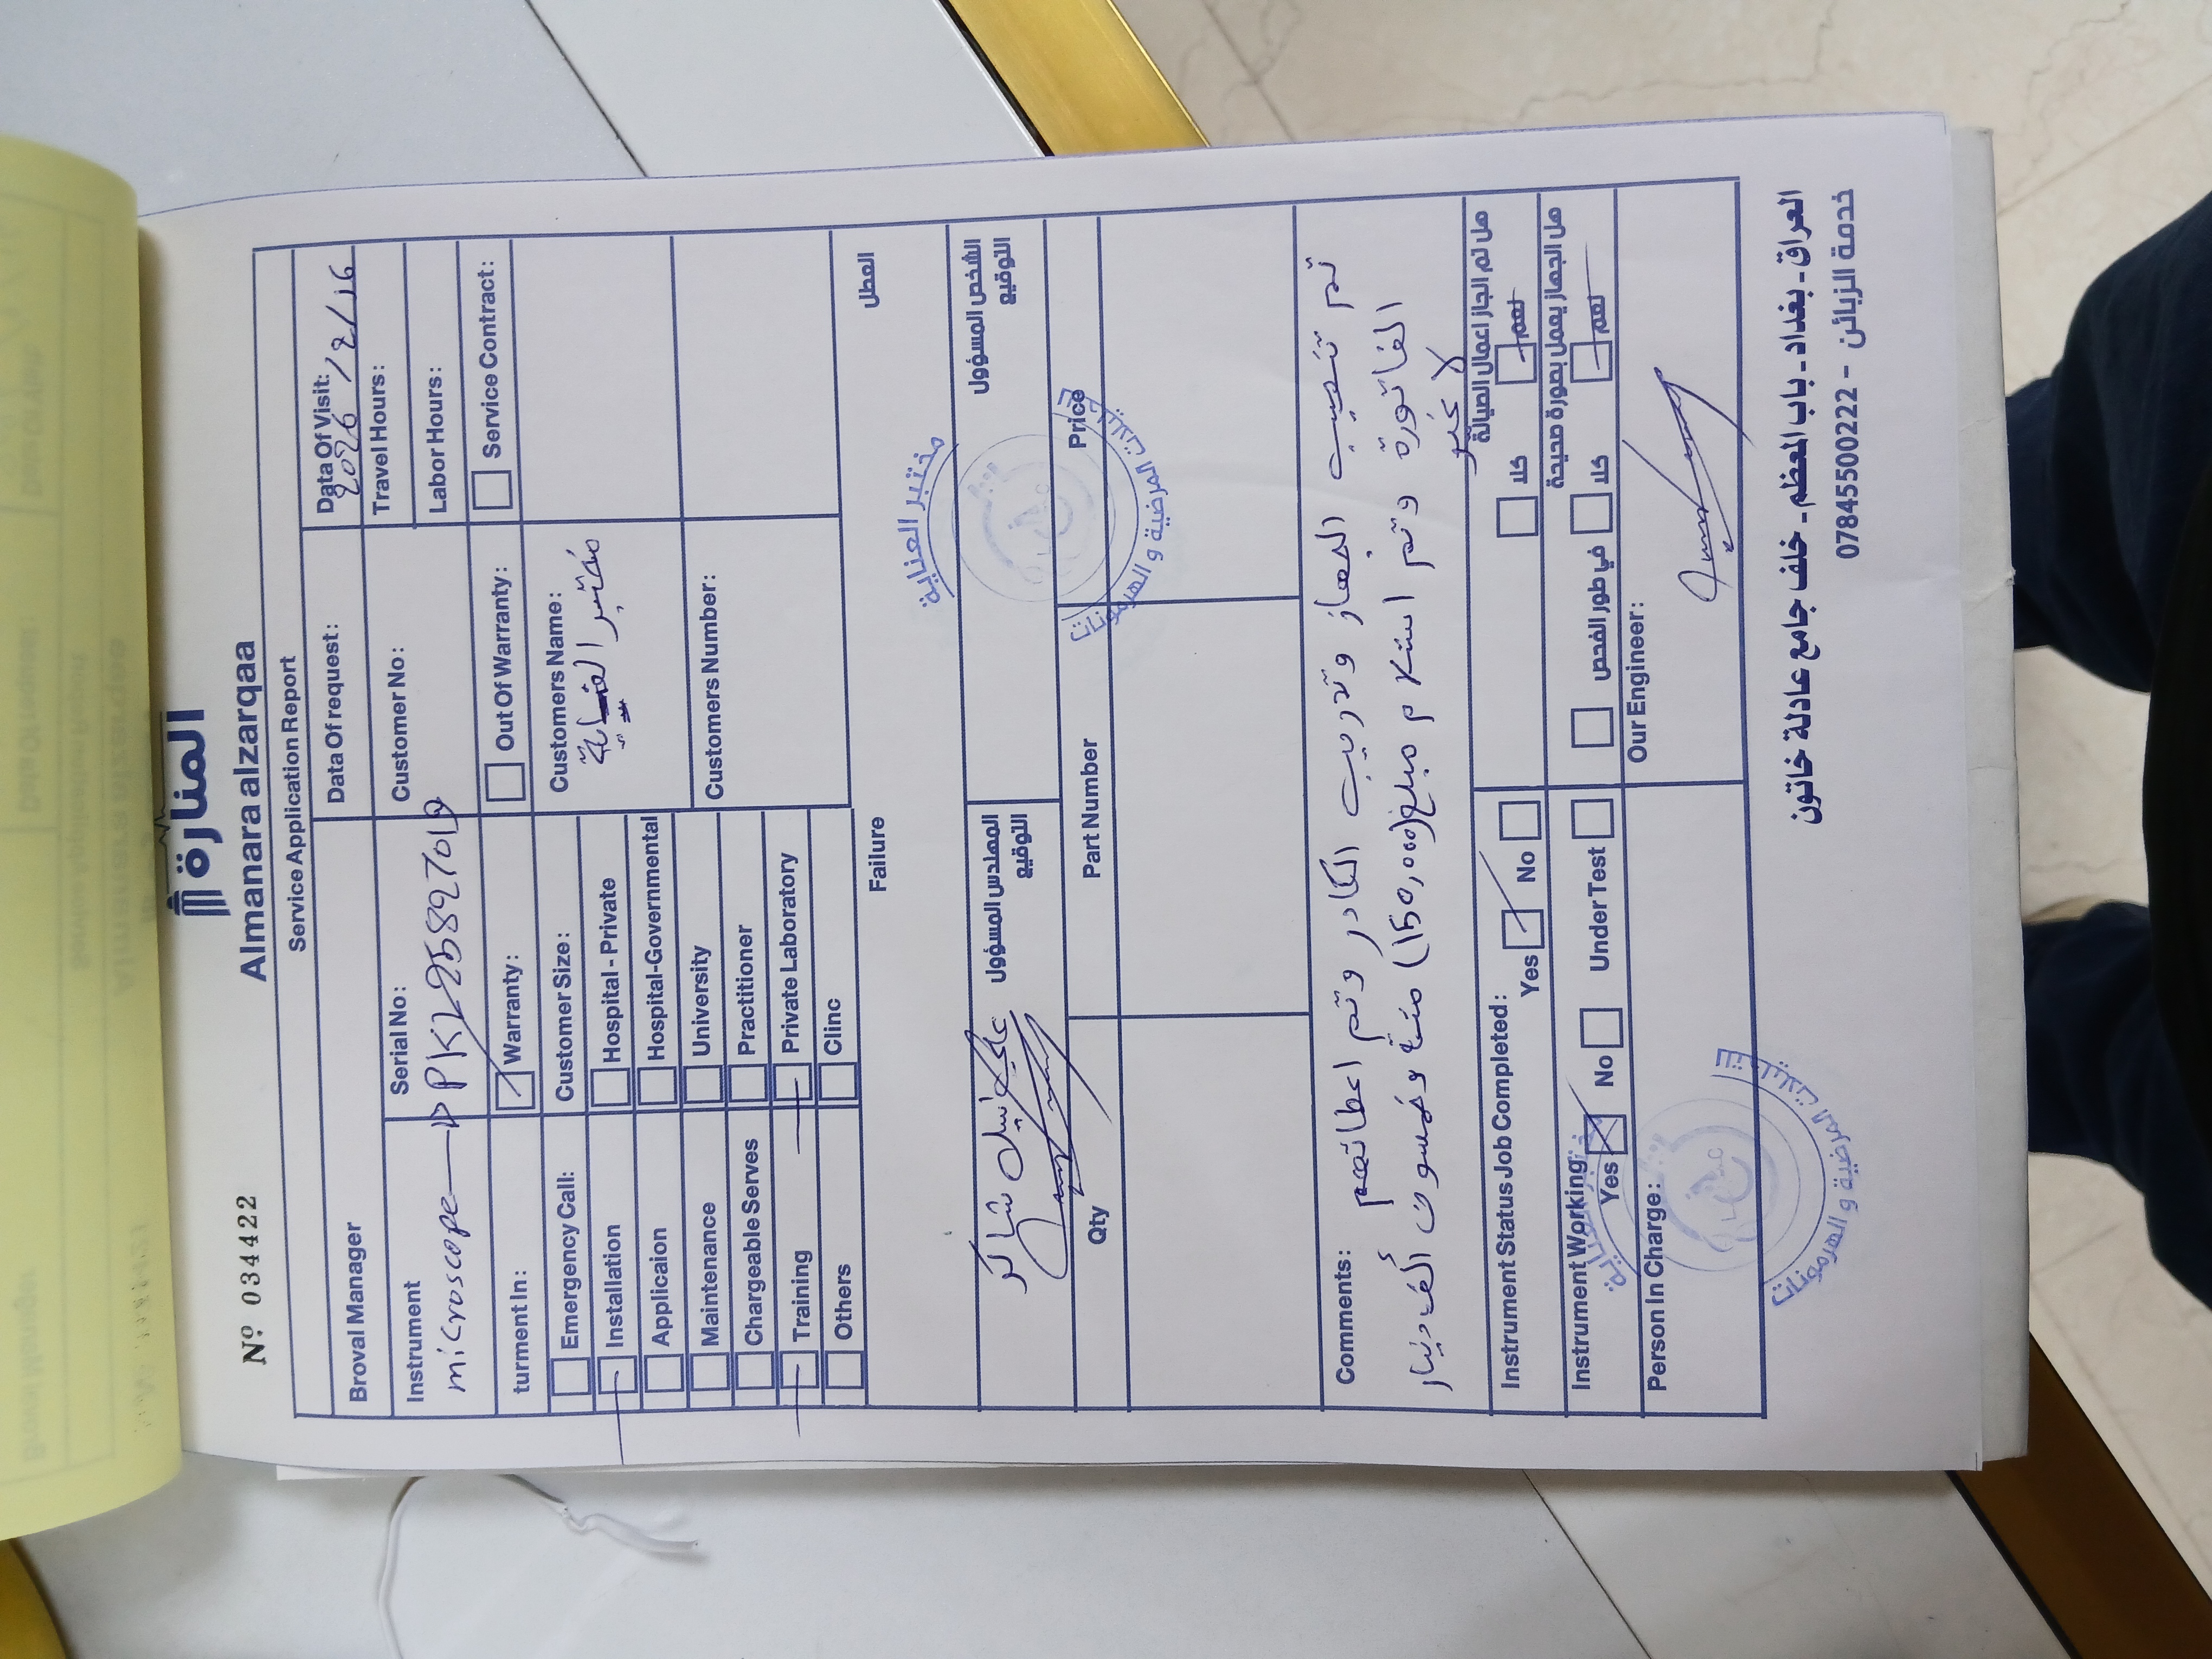 Nº 034422
المنارة
Almanara alzarqaa
Service Application Report
Broval Manager
Data Of request:
Data Of Visit:
2026/2/16
Instrument
microscope
Serial No:
PKL258927019
Customer No:
Travel Hours:
Labor Hours:
turment In:
Warranty:
Out Of Warranty:
Service Contract:
Emergency Call:
Customer Size:
Customers Name:
مختبر العناية
Installation
Hospital - Private
Applicaion
Hospital-Governmental
Maintenance
University
Customers Number:
Chargeable Serves
Practitioner
Training
Private Laboratory
Others
Clinc
Failure
العطل
المهندس المسؤول
التوقيع
شاكر
الشخص المسؤول
التوقيع
مختبر العناية
للتحليلات المرضية و الهرمونات
Qty
Part Number
Price
Comments:
تم تنصيب الجهاز وتدريب الكادر وتم اعطائهم
الفاتورة وتم استلام مبلغ (150,000) مئة وخمسون ألف دينار
لا غير
Instrument Status Job Completed:
Yes
No
هل تم انجاز اعمال الصيانة
كلا
نعم
Instrument Working:
Yes
No
Under Test
هل الجهاز يعمل بصورة صحيحة
في طور الفحص
كلا
نعم
Person In Charge:
Our Engineer:
للتحليلات المرضية و الهرمونات
العراق - بغداد - باب المعظم - خلف جامع عادلة خاتون
خدمة الزبائن - 07845500222